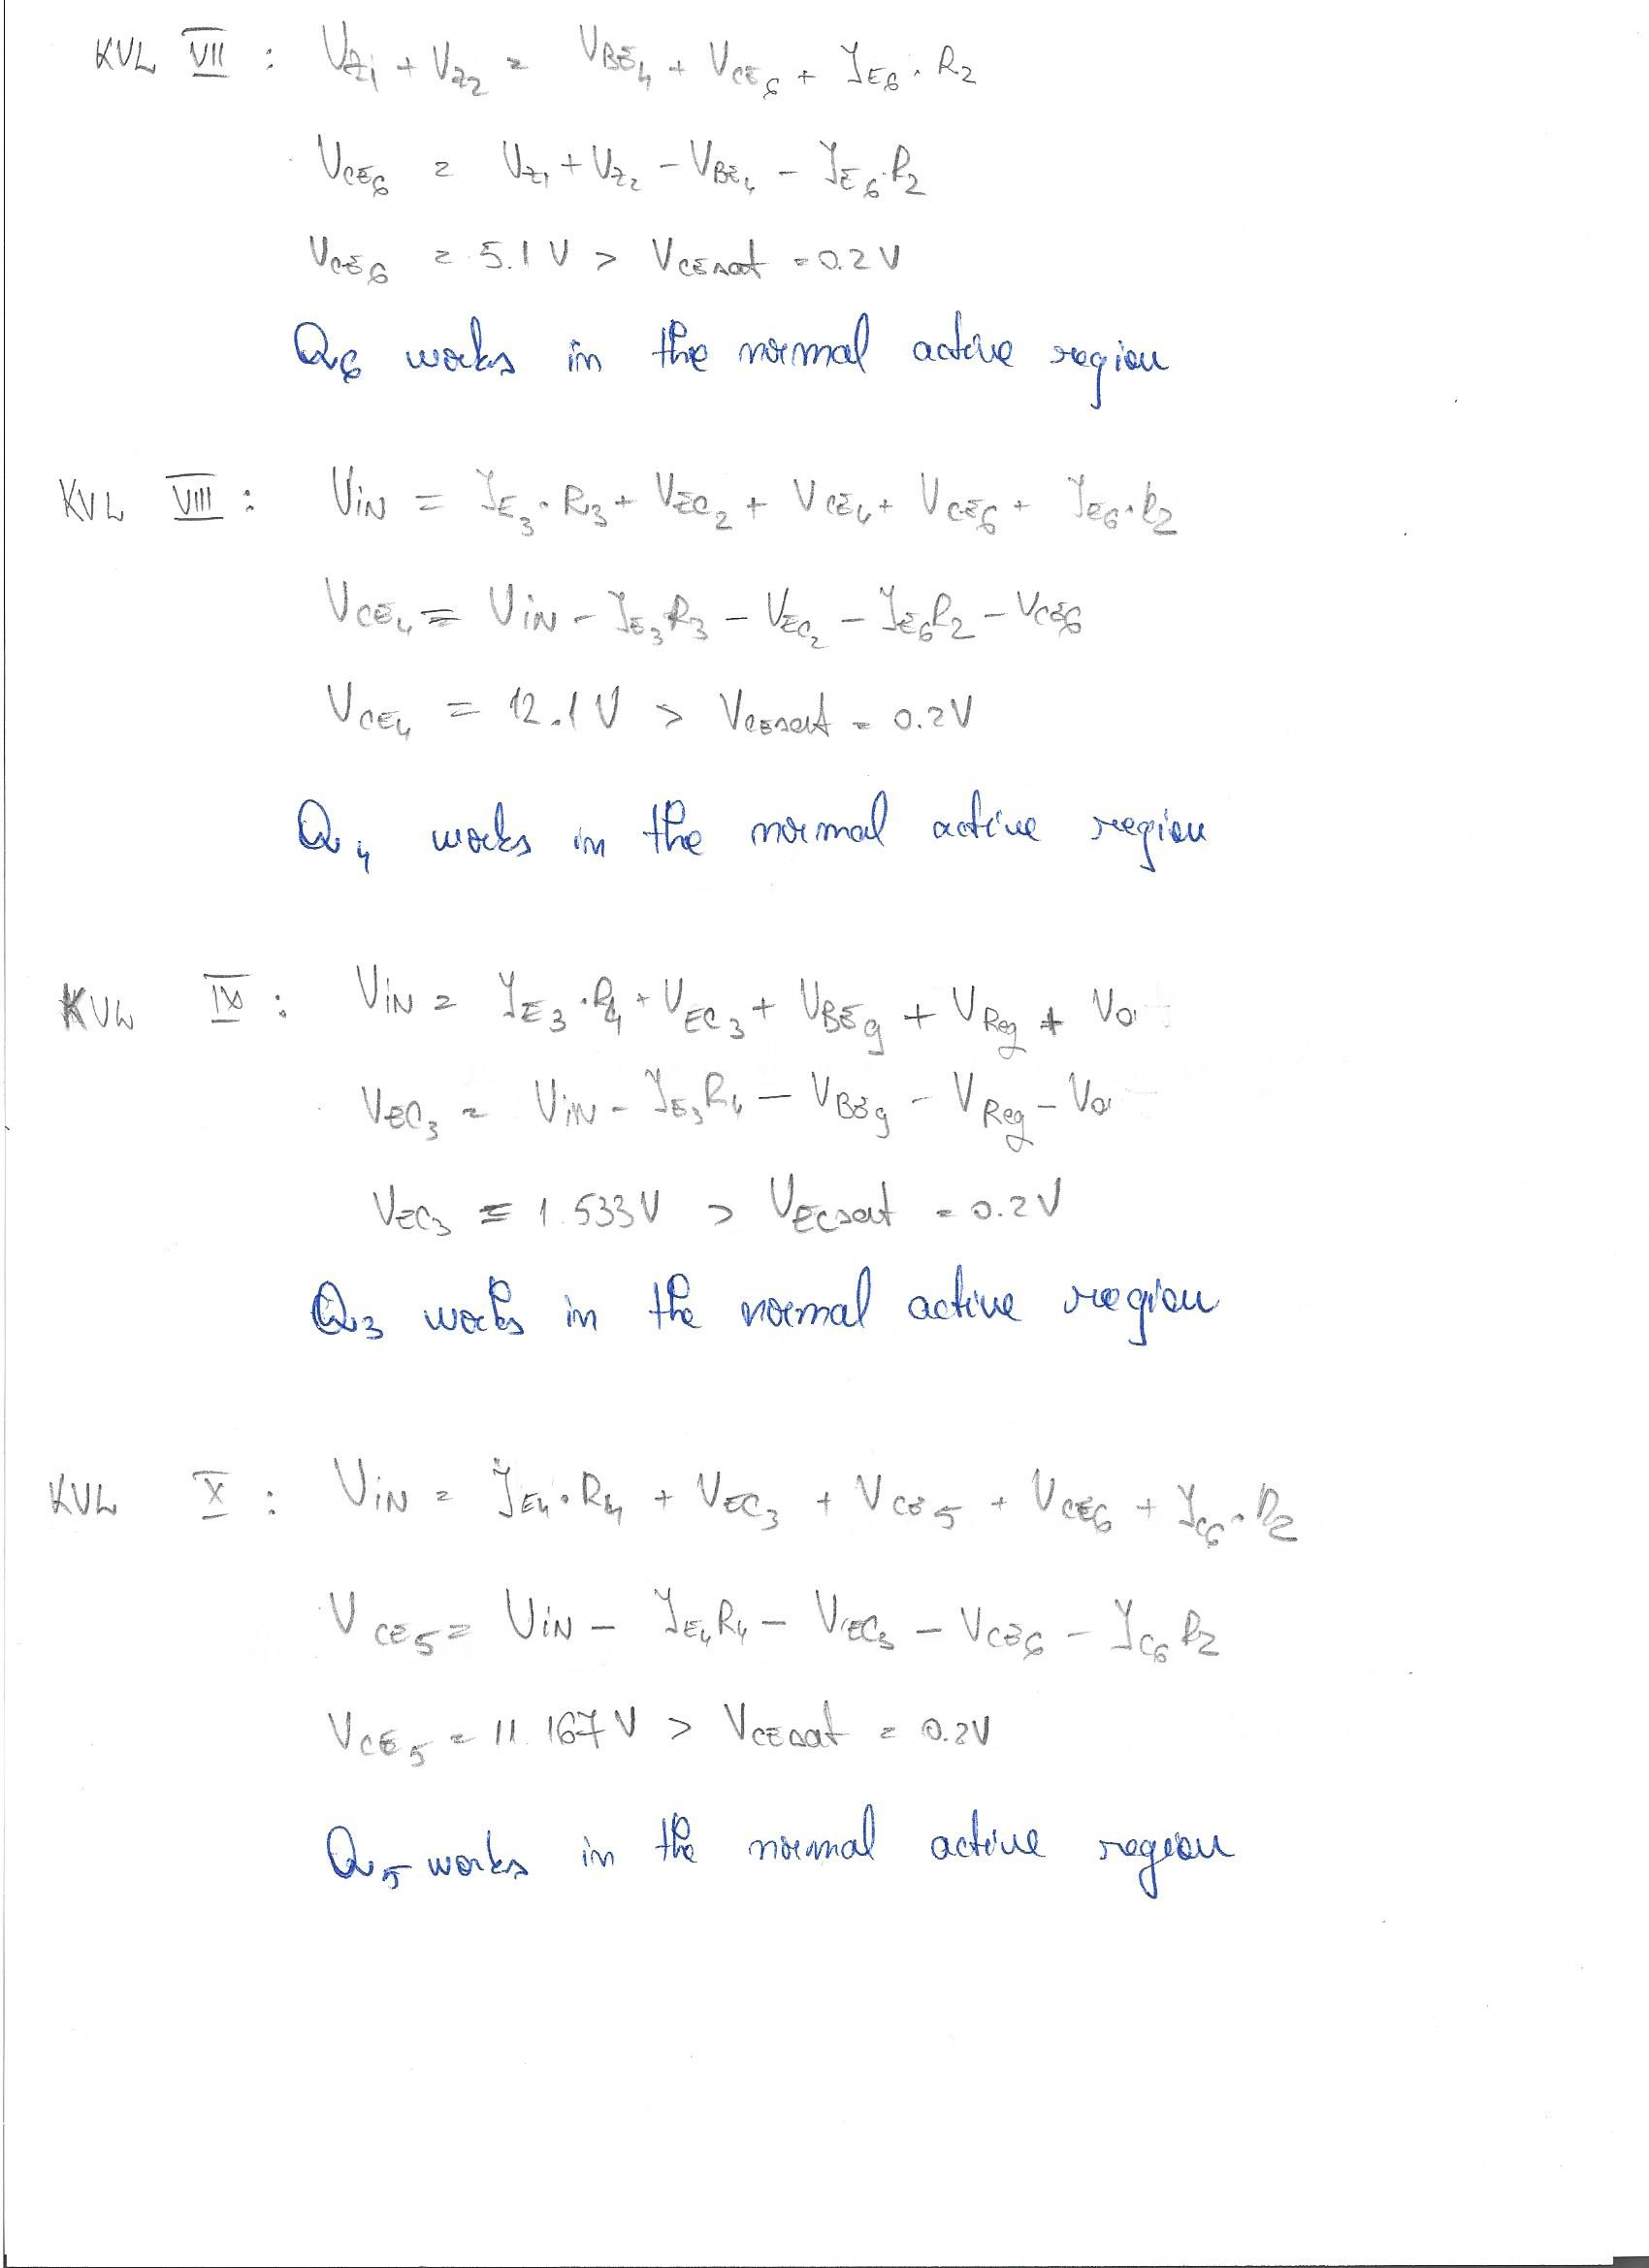 KVL VII : VZ1 + VZ2 = VBE4 + VCE6 + IE6 · R2
VCE6 = VZ1 + VZ2 - VBE4 - IE6·R2
VCE6 = 5.1 V > VCEsat = 0.2 V
Q6 works in the normal active region
KVL VIII : VIN = IE3 · R3 + VEC2 + VCE4 + VCE6 + IE6·R2
VCE4 = VIN - IE3R3 - VEC2 - IE6R2 - VCE6
VCE4 = 12.1 V > VCEsat = 0.2V
Q4 works in the normal active region
KVL IX : VIN = IE3 ·R4 + VEC3 + VBE9 + VReg + VO
VEC3 = VIN - IE3R4 - VBE9 - VReg - VO
VEC3 = 1.533V > VECsat = 0.2V
Q3 works in the normal active region
KVL X : VIN = IE4·R4 + VEC3 + VCE5 + VCE6 + IC6·R2
VCE5 = VIN - IE4R4 - VEC3 - VCE6 - IC6R2
VCE5 = 11.167 V > VCEsat = 0.2V
Q5 works in the normal active region